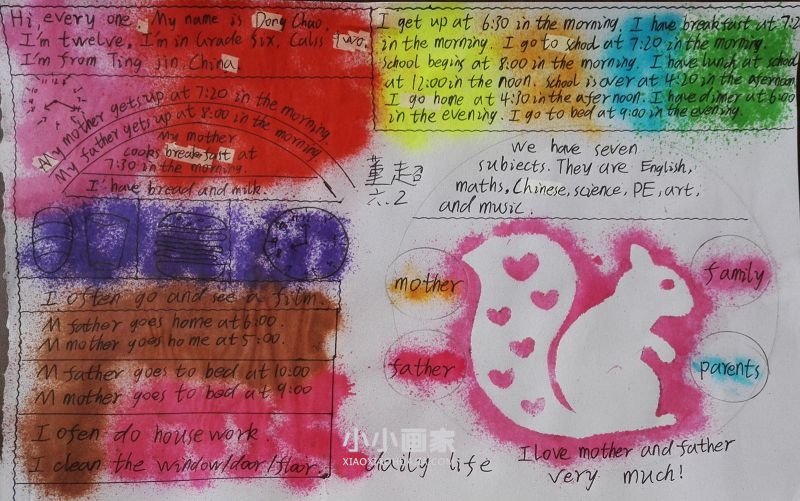 Hi, every one. My name is Dong Chao.
I'm twelve. I'm in Grade Six. Calss Two.
I'm from Ting jin, China
My mother gets up at 7:20 in the morning.
My father gets up at 8:00 in the morning
My mother
cooks breakfast at
7:30 in the morning.
I have bread and milk.
I often go and see a film.
M father goes home at 6:00.
M mother goes home at 5:00.
M father goes to bed at 10:00
M mother goes to bed at 9:00
I ofen do house work.
I clean the window/door/floor.
I get up at 6:30 in the morning. I have breakfast at 7:2
in the morning. I go to school at 7:20 in the morning.
school begins at 8:00 in the morning. I have lunch at school
at 12:00 in the noon. school is over at 4:20 in the afernoon
I go home at 4:30 in the afernoon. I have dinner at 6:00
in the evening. I go to bed at 9:00 in the evening.
董超
六.2
We have seven
subiects. They are English,
maths, Chinese, science, PE, art,
and music.
mother
family
father
parents
daily life
I love mother and father
very much!
小小画家